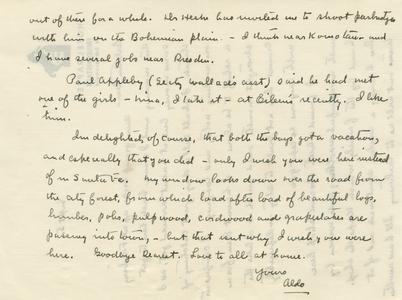 out of this for a while. Dr Heske has invited me to shoot partridges
with him on the Bohemian plain. - I think near Komotau and
I have several jobs near Dresden.
Paul Appleby (Sec'ty Wallace's asst) said he had met
one of the girls - Nina, I take it - at recently. I like
him.
I'm delighted, of course, that both the boys got a vacation,
and especially that you did - only I wish you were here instead
of in Santa Fe. My window looks down over the road from
the city forest, from which load after load of beautiful logs,
lumber, poles, pulpwood, cordwood and grapestakes are
passing into town, - but that isn't why I wish you were
here. Goodbye Dearest. Love to all at home.
Yours
Aldo